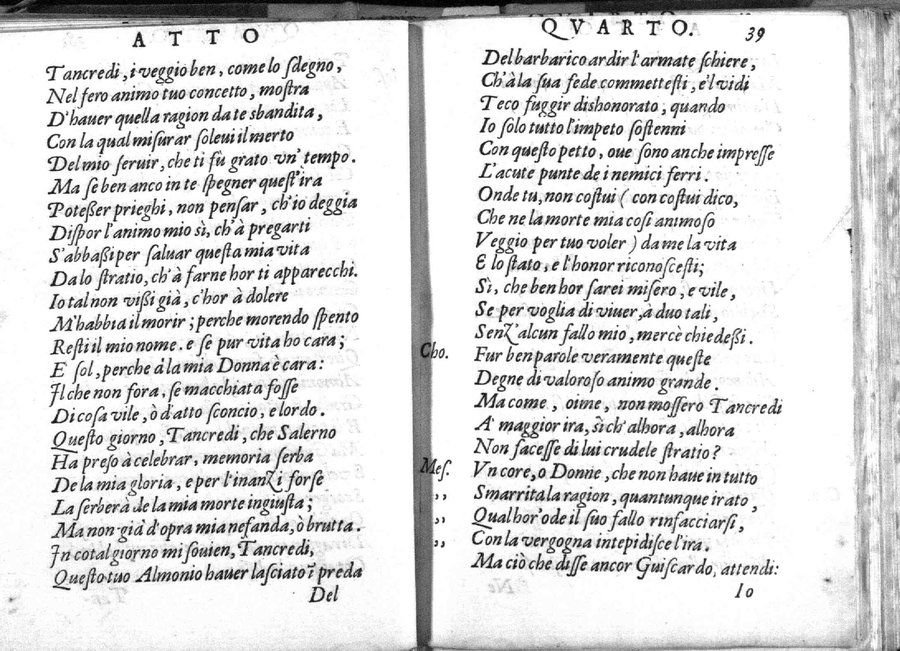 ATTO
Tancredi, i veggio ben, come lo sdegno,
Nel fero animo tuo concetto, mostra
D'hauer quella ragion da te sbandita,
Con la qual misurar soleui il merto
Del mio seruir, che ti fù grato vn' tempo.
Ma se ben anco in te spegner quest'ira
Poteßer prieghi, non pensar, ch'io deggia
Dispor l'animo mio sì, ch'à pregarti
S'abbaßi per saluar questa mia vita
Da lo stratio, ch'à farne hor ti apparecchi.
Io tal non vißi già, c'hor à dolere
M'habbia il morir; perche morendo spento
Resti il mio nome. e se pur vita ho cara;
E sol, perche à la mia Donna è cara:
Il che non fora, se macchiata fosse
Di cosa vile, ò d'atto sconcio, e lordo.
Questo giorno, Tancredi, che Salerno
Ha preso à celebrar, memoria serba
De la mia gloria, e per l'inanzi forse
La serberà de la mia morte ingiusta;
Ma non già d'opra mia nefanda, ò brutta.
In cotal giorno mi souien, Tancredi,
Questo tuo Almonio hauer lasciato ĩ preda
Del
QVARTO. 39
Del barbarico ardir l'armate schiere,
Ch'à la sua fede commettesti, e'l vidi
Teco fuggir dishonorato, quando
Io solo tutto l'impeto sostenni
Con questo petto, oue sono anche impresse
L'acute punte de i nemici ferri.
Onde tu, non costui (con costui dico,
Che ne la morte mia così animoso
Veggio per tuo voler) da me la vita
E lo stato, e l'honor riconoscesti;
Sì, che ben hor sarei misero, e vile,
Se per voglia di viuer, à duo tali,
Senz'alcun fallo mio, mercè chiedeßi.
Cho. Fur ben parole veramente queste
Degne di valoroso animo grande.
Ma come, oime, non mossero Tancredi
A' maggior ira, sì ch'alhora, alhora
Non facesse di lui crudele stratio?
Mes. Vn core, o Donne, che non haue in tutto
,, Smarrita la ragion, quantunque irato,
,, Qualhor'ode il suo fallo rinfacciarsi,
,, Con la vergogna intepidisce l'ira.
Ma ciò che disse ancor Guiscardo, attendi:
Io